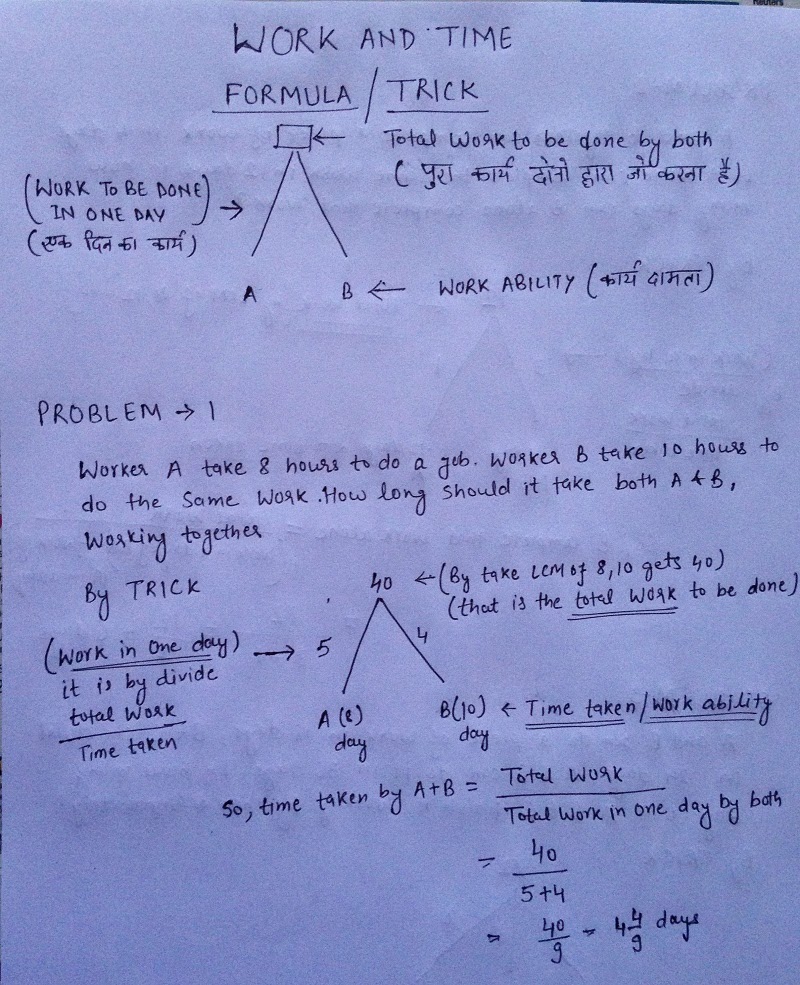 Reuters
WORK AND TIME
FORMULA / TRICK
← Total Work to be done by both
( पुरा कार्य दोनो द्वारा जो करना है)
(WORK TO BE DONE
IN ONE DAY) →
(एक दिन का कार्य)
A B ← WORK ABILITY (कार्य क्षमता)
PROBLEM → 1
Worker A take 8 hours to do a job. Worker B take 10 hours to
do the Same Work. How long should it take both A & B,
Working together
By TRICK
40 ← (By take LCM of 8,10 gets 40)
(that is the total Work to be done)
(Work in One day) → 5 4
it is by divide
total Work
Time taken
A (8) B(10) ← Time taken / Work ability
day day
So, time taken by A+B = Total Work
Total Work in one day by both
= 40
5+4
= 40/9 = 4 4/9 days